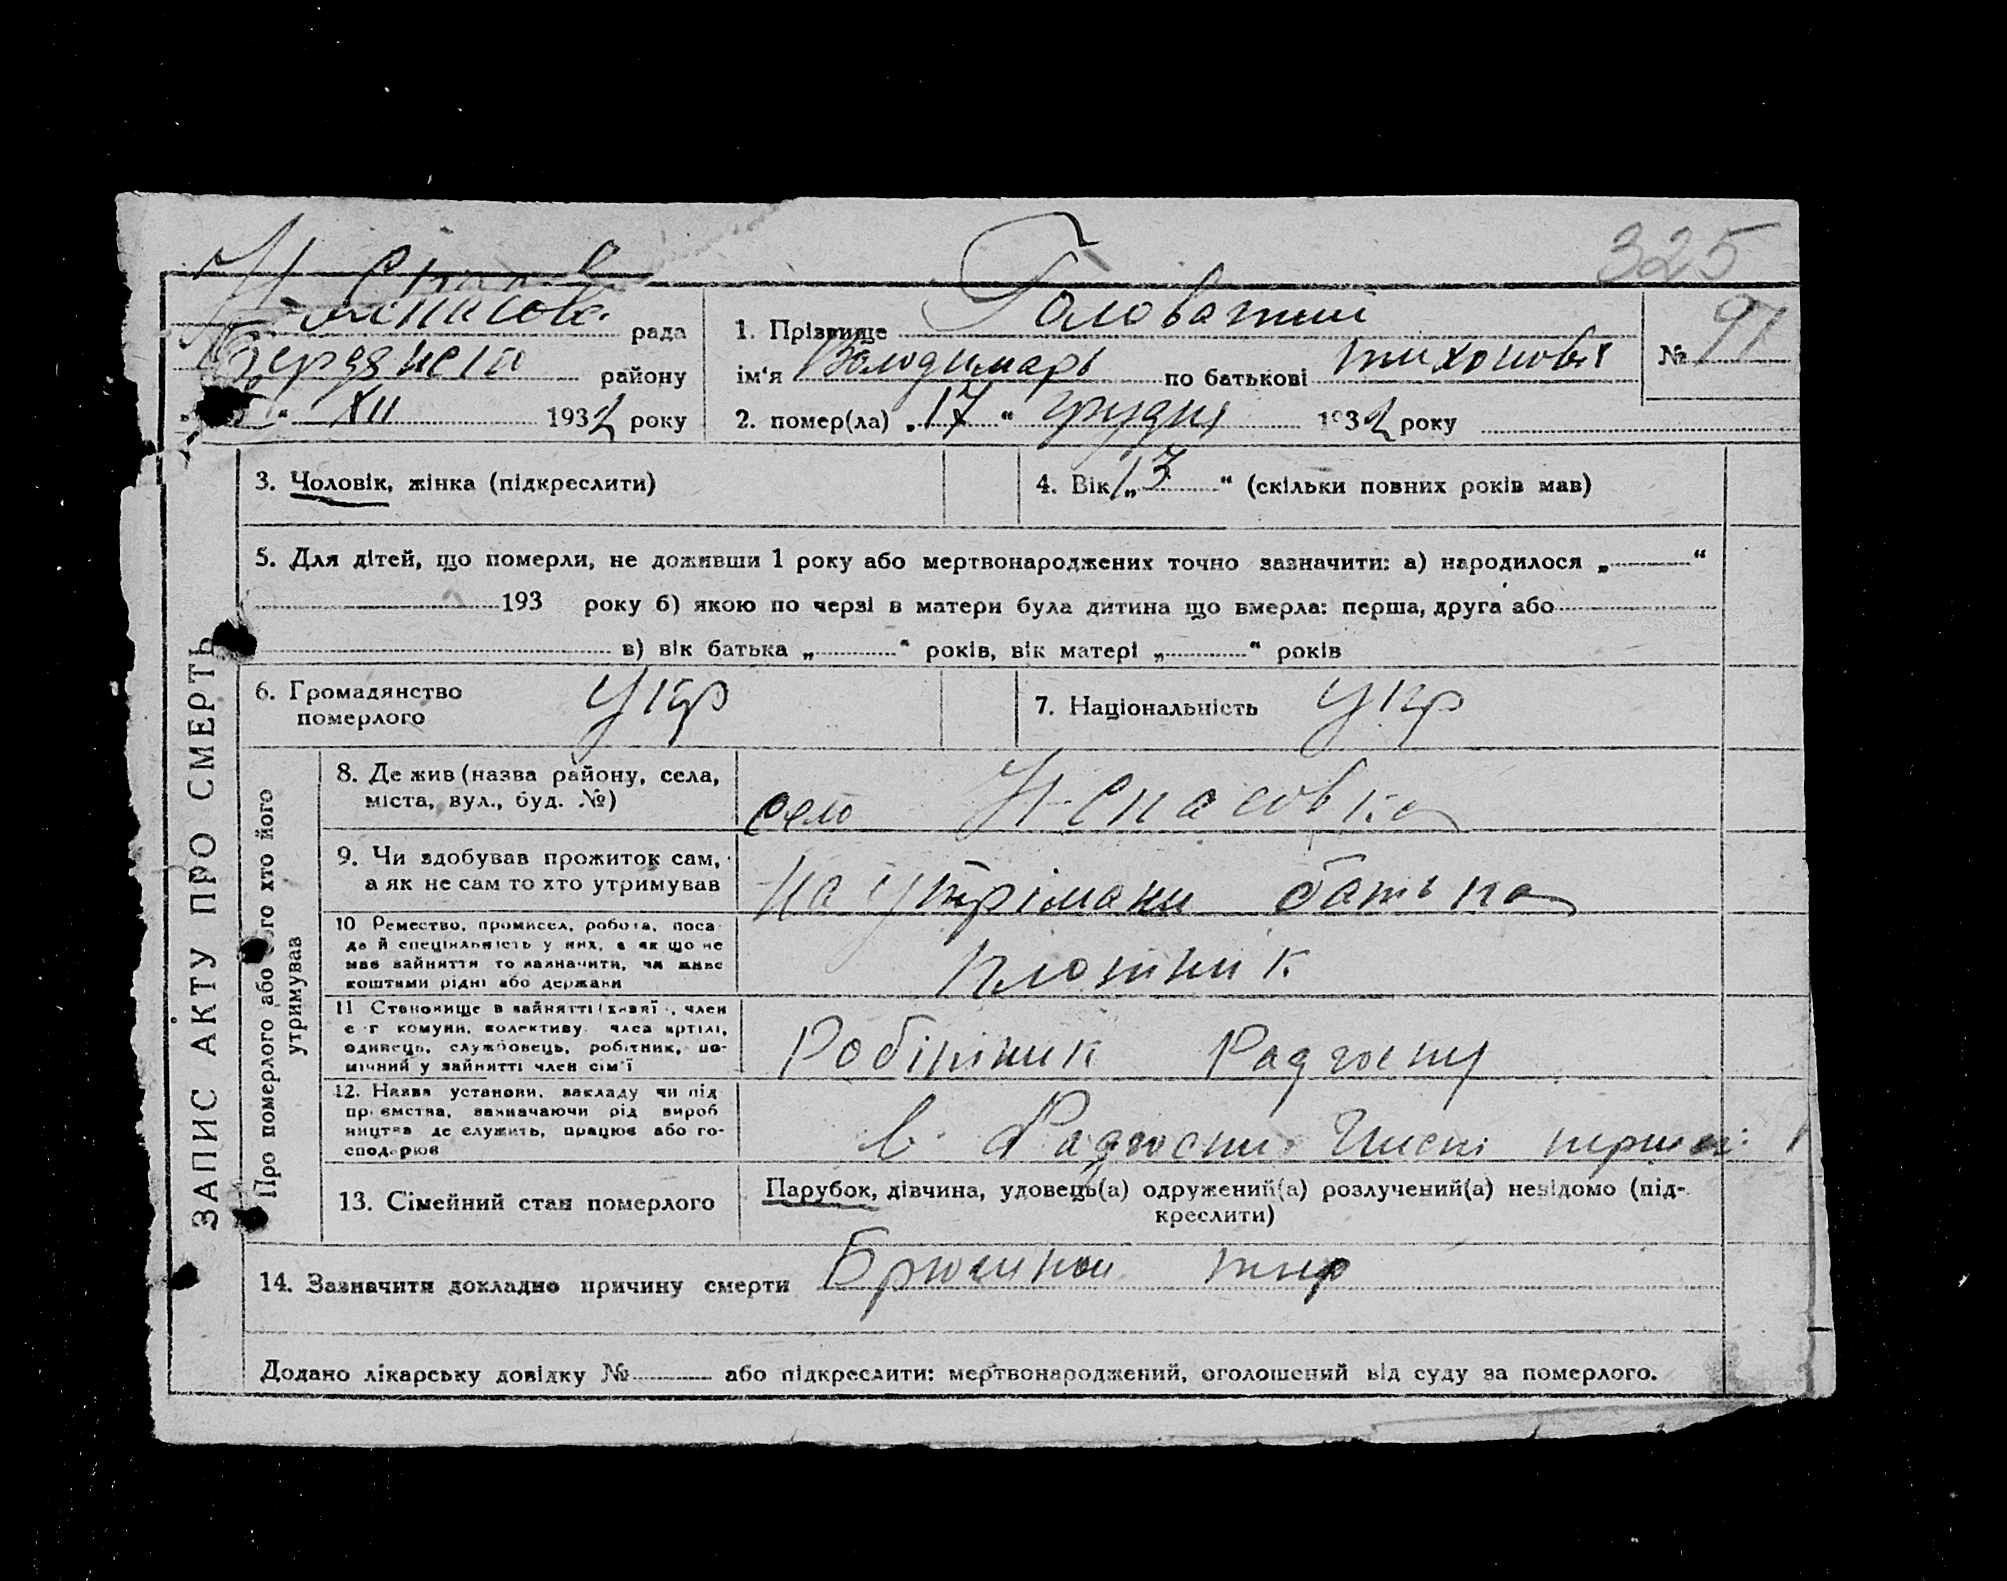 325
Н Спасов
рада
1. Прізвище Головатий
№ 91
Бердянська району
ім'я Володимарь по батькові тихонов
XII 1932 року
2. помер(ла) „17“ грудня 1932 року
3. Чоловік, жінка (підкреслити)
4. Вік „13“ (скільки повних років мав)
5. Для дітей, що померли, не доживши 1 року або мертвонароджених точно зазначити: а) народилося „ “
193 року б) якою по черзі в матери була дитина що вмерла: перша, друга або
в) вік батька „ “ років, вік матері „ “ років
6. Громадянство
померлого
Укр
7. Національність Укр
ЗАПИС АКТУ ПРО СМЕРТЬ
Про померлого або того хто його
утримував
8. Де жив (назва району, села,
міста, вул., буд. №)
село Н-Спасовка
9. Чи здобував прожиток сам,
а як не сам то хто утримував
На утрімани батька
10 Ремество, промисел, робота, поса-
да й спеціяльність у них, а як що не
мав зайняття то зазначити, чи живе
коштами рідні або держави
плотник
11 Становище в зайнятті (хазяї , член
с-г комуни, колективу, член артілі,
одинець, службовець, робітник, по-
мічний у зайнятті член сім'ї
Робітник Радгоспу
12. Назва установи, закладу чи під-
приємства, зазначаючи рід вироб-
ництва де служить, працює або го-
сподарює
в Радгоспи
13. Сімейний стан померлого
Парубок, дівчина, удовець(а) одружений(а) розлучений(а) невідомо (під-
креслити)
14. Зазначити докладно причину смерти Брюшной тиф
Додано лікарську довідку № або підкреслити: мертвонароджений, оголошений від суду за померлого.